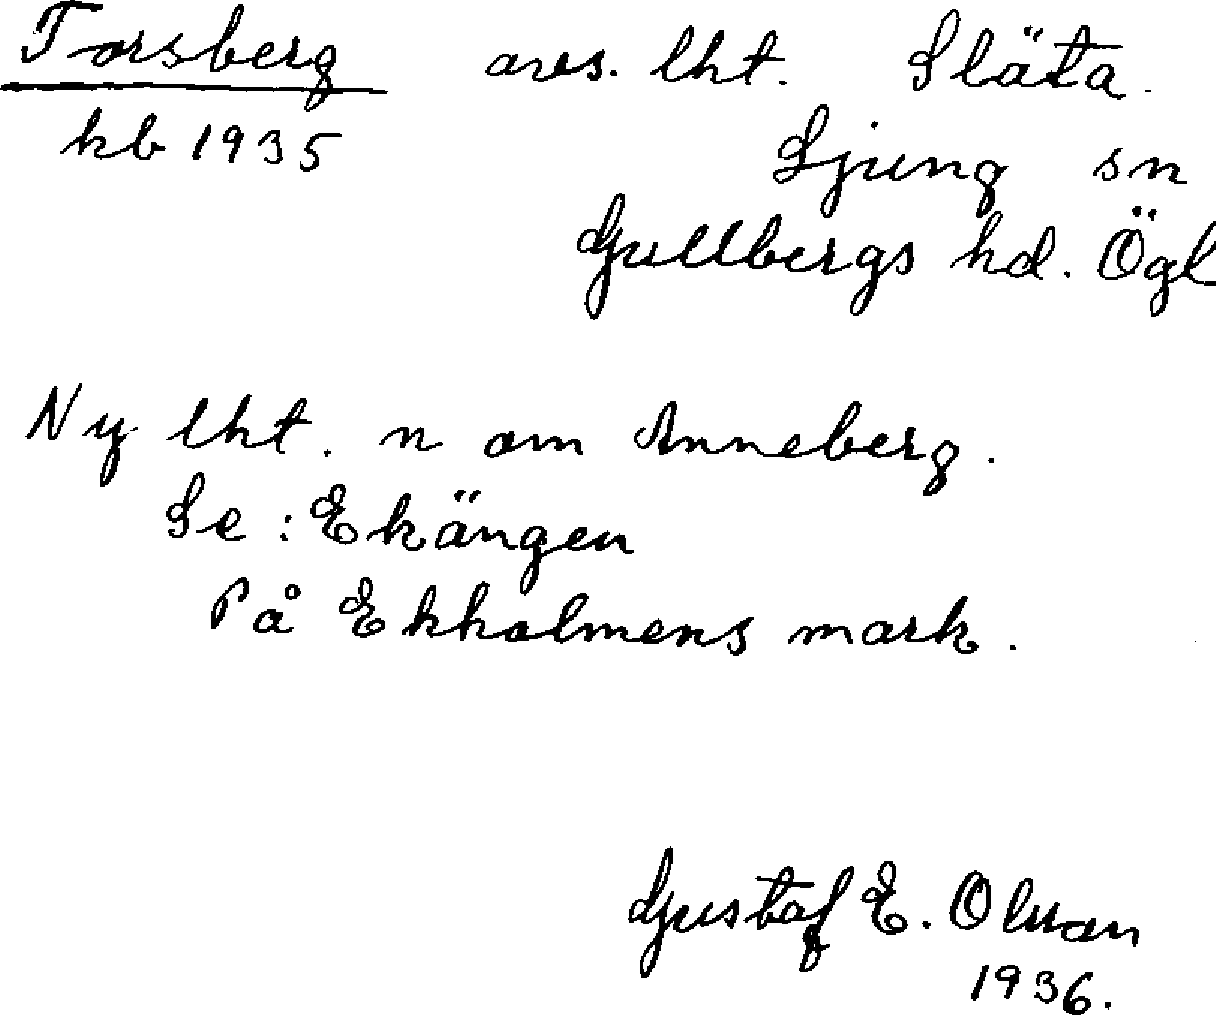 Torsberg avs. lht. Släta.
kb 1935
Ljung sn
Gullbergs hd. Ögl
Ny lht. n om Anneberg.
Se: Ekängen
På Ekholmens mark.
Gustaf E. Olsson
1936.